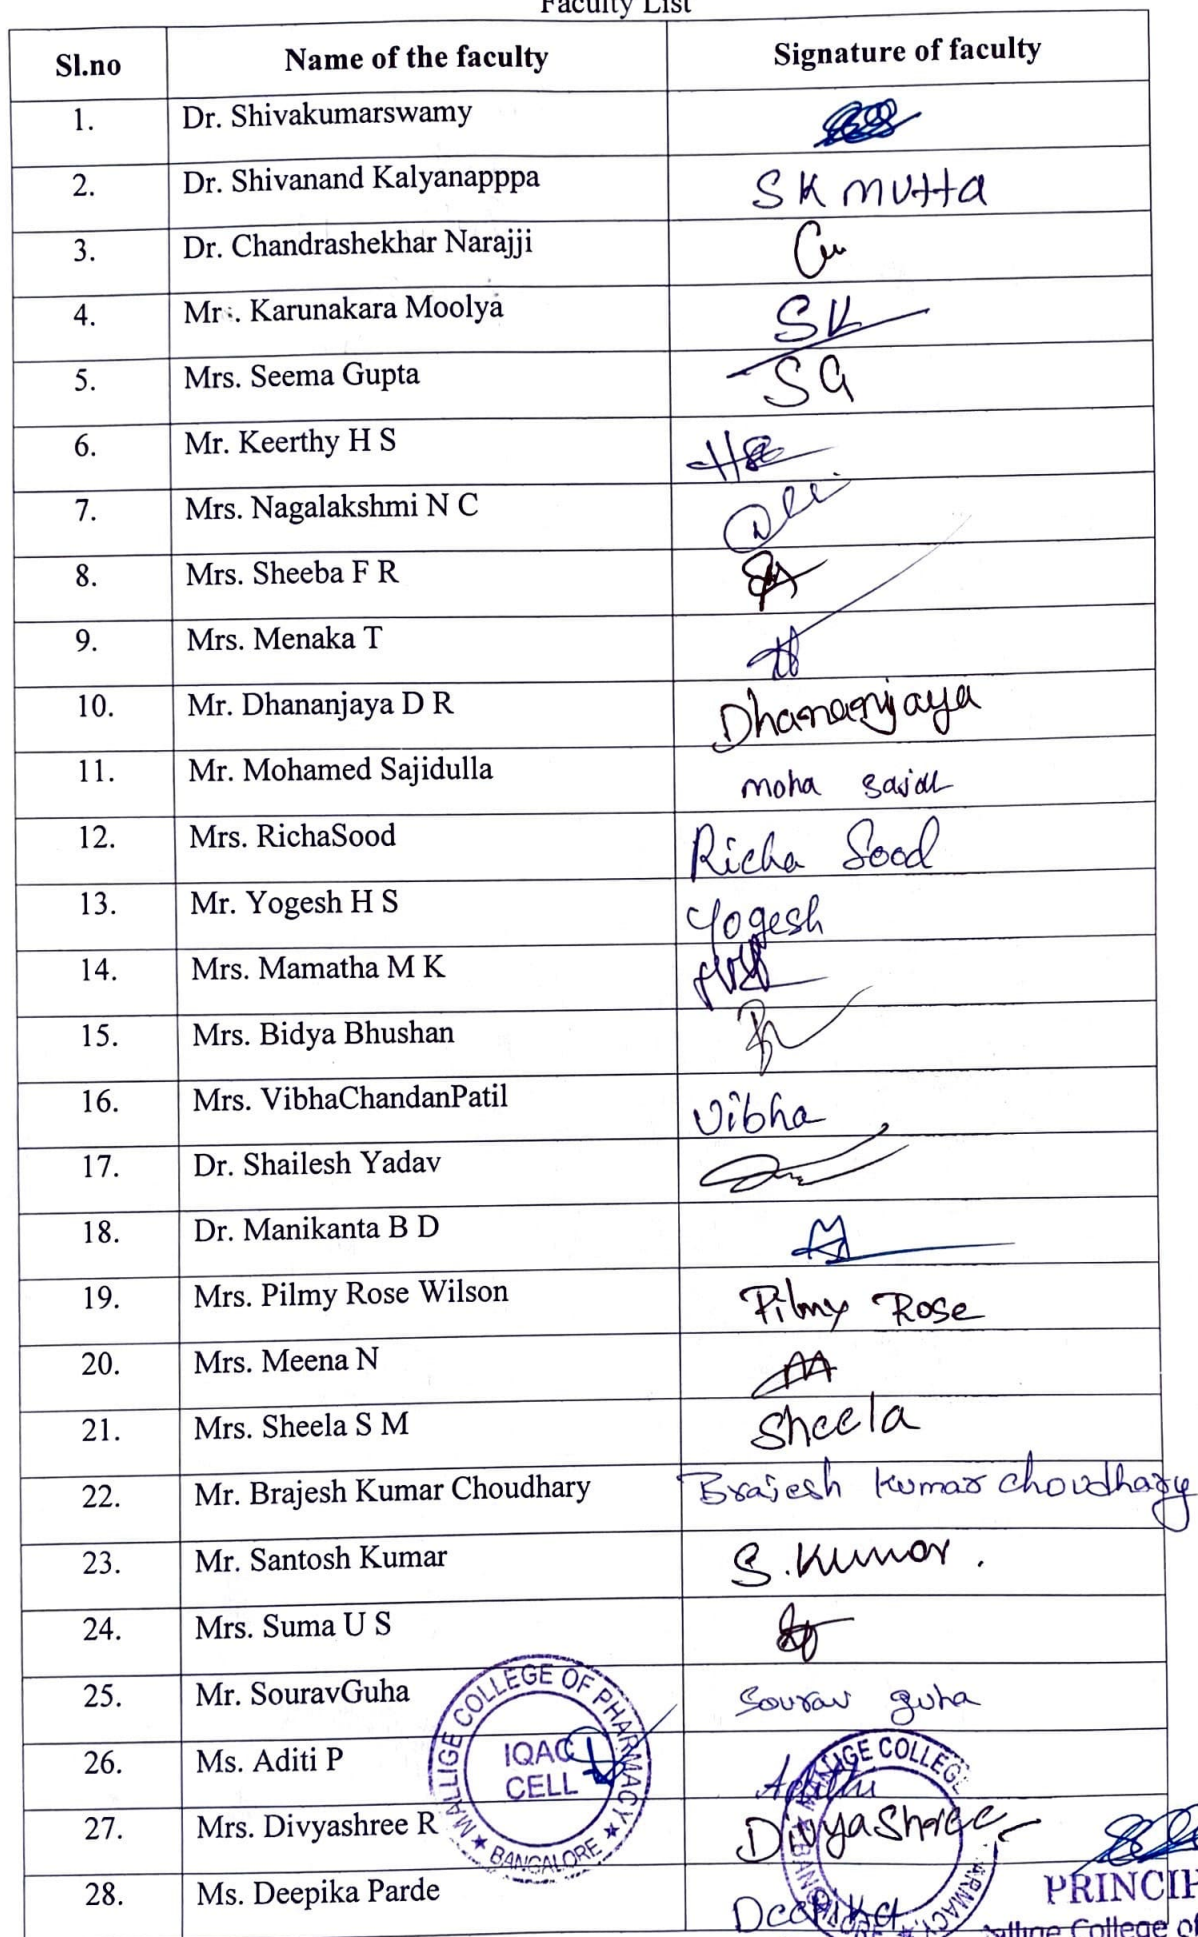 Faculty List
Sl.no Name of the faculty Signature of faculty
1. Dr. Shivakumarswamy
2. Dr. Shivanand Kalyanapppa S K mutta
3. Dr. Chandrashekhar Narajji
4. Mr. Karunakara Moolya SK
5. Mrs. Seema Gupta SG
6. Mr. Keerthy H S
7. Mrs. Nagalakshmi N C
8. Mrs. Sheeba F R
9. Mrs. Menaka T
10. Mr. Dhananjaya D R Dhananjaya
11. Mr. Mohamed Sajidulla moha
12. Mrs. RichaSood Richa Sood
13. Mr. Yogesh H S Yogesh
14. Mrs. Mamatha M K
15. Mrs. Bidya Bhushan
16. Mrs. VibhaChandanPatil Vibha
17. Dr. Shailesh Yadav
18. Dr. Manikanta B D
19. Mrs. Pilmy Rose Wilson Pilmy Rose
20. Mrs. Meena N
21. Mrs. Sheela S M Sheela
22. Mr. Brajesh Kumar Choudhary Brajesh Kumar Choudhary
23. Mr. Santosh Kumar S. Kumar.
24. Mrs. Suma U S
25. Mr. SouravGuha Sourav guha
26. Ms. Aditi P
27. Mrs. Divyashree R DivyaShree
28. Ms. Deepika Parde Deepika
MALLIGE COLLEGE OF PHARMACY
IQAC
CELL
BANGALORE
PRINCIP
College of